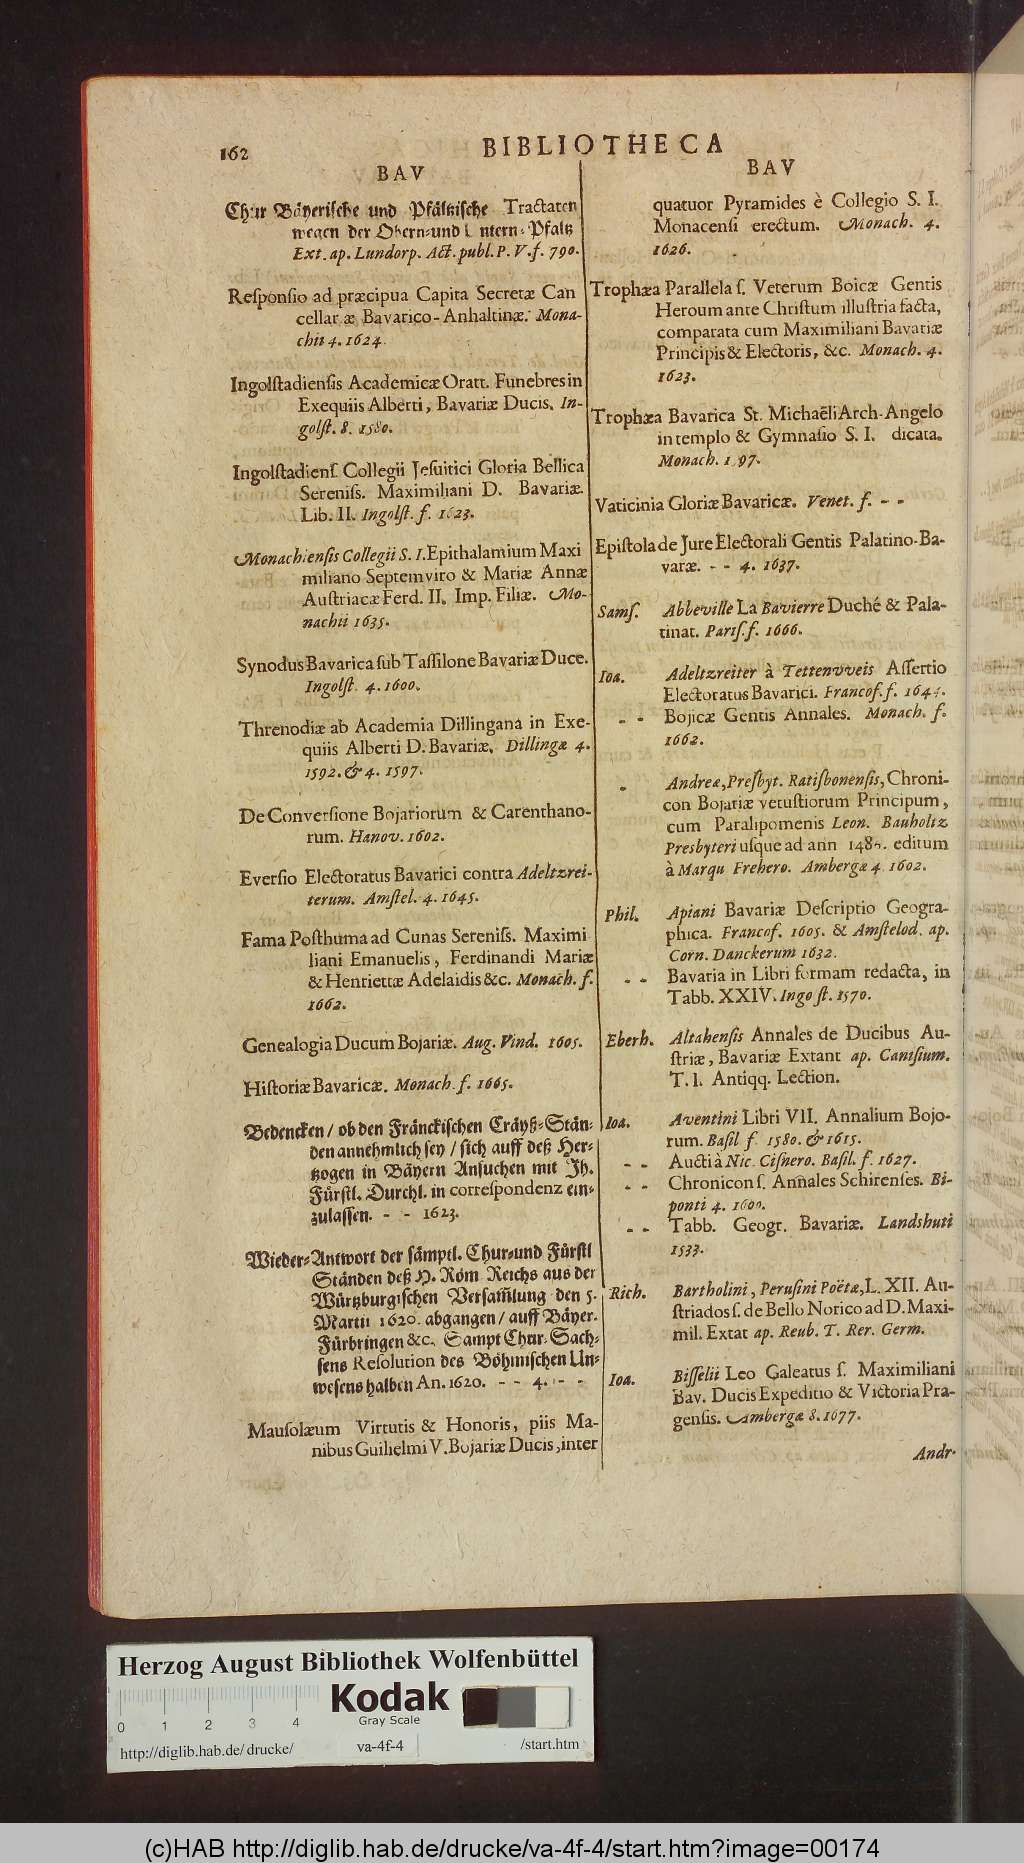 162
BIBLIOTHECA
BAV
Chur Bäyerische und Pfältzische Tractaten
wegen der Obern-und Untern-Pfaltz
Ext. ap. Lundorp. Act. publ. P. V. f. 790.
Responsio ad præcipua Capita Secretæ Can
cellariæ Bavarico-Anhaltinæ. Mona-
chii 4. 1624.
Ingolſtadienſis Academicæ Oratt. Funebres in
Exequiis Alberti, Bavariæ Ducis. In-
golſt. 8. 1580.
Ingolſtadienſ. Collegii Jeſuitici Gloria Bellica
Sereniſs. Maximiliani D. Bavariæ.
Lib. II. Ingolſt. f. 1623.
Monachienſis Collegii S. I. Epithalamium Maxi
miliano Septemviro & Mariæ Annæ
Auſtriacæ Ferd. II. Imp. Filiæ. Mo-
nachii 1635.
Synodus Bavarica ſub Taſſilone Bavariæ Duce.
Ingolſt. 4. 1600.
Threnodiæ ab Academia Dillingana in Exe-
quiis Alberti D. Bavariæ. Dillingæ 4.
1592. & 4. 1597.
De Converſione Bojariorum & Carenthano-
rum. Hanov. 1602.
Everſio Electoratus Bavarici contra Adeltzrei-
terum. Amſtel. 4. 1645.
Fama Poſthuma ad Cunas Sereniſs. Maximi
liani Emanuelis, Ferdinandi Mariæ
& Henriettæ Adelaidis &c. Monach. f.
1662.
Genealogia Ducum Bojariæ. Aug. Vind. 1605.
Hiſtoriæ Bavaricæ. Monach. f. 1665.
Bedencken / ob den Fränckiſchen Cräyß-Stän-
den annehmlich ſey / ſich auff deß Her-
tzogen in Bäyern Anſuchen mit Ih.
Fürſtl. Durchl. in correſpondenz ein-
zulaſſen. - - 1623.
Wieder-Antwort der ſämptl. Chur-und Fürſtl
Ständen deß H. Röm Reichs aus der
Würtzburgiſchen Verſam̃lung den 5.
Martii 1620. abgangen / auff Bäyer.
Fürbringen &c. Sampt Chur-Sach-
ſens Reſolution des Böhmiſchen Un-
weſens halben An. 1620. - - 4. - -
Mauſolæum Virtutis & Honoris, piis Ma-
nibus Guilielmi V. Bojariæ Ducis, inter
BAV
quatuor Pyramides è Collegio S. I.
Monacenſi erectum. Monach. 4.
1626.
Trophæa Parallela ſ. Veterum Boicæ Gentis
Heroum ante Chriſtum illuſtria facta,
comparata cum Maximiliani Bavariæ
Principis & Electoris, &c. Monach. 4.
1623.
Trophæa Bavarica St. Michaëli Arch-Angelo
in templo & Gymnaſio S. I. dicata.
Monach. 1 97.
Vaticinia Gloriæ Bavaricæ. Venet. f. - -
Epiſtola de Jure Electorali Gentis Palatino-Ba-
varæ. - - 4. 1637.
Samſ. Abbeville La Bavierre Duché & Pala-
tinat. Pariſ. f. 1666.
Ioa. Adeltzreiter à Tettenvveis Aſſertio
Electoratus Bavarici. Francof. f. 1644.
- - Bojicæ Gentis Annales. Monach. f.
1662.
- Andreæ, Preſbyt. Ratiſbonenſis, Chroni-
con Bojariæ vetuſtiorum Principum,
cum Paralipomenis Leon. Bauholtz
Presbyteri uſque ad ann editum
à Marqu Frehero. Ambergæ 4. 1602.
Phil. Apiani Bavariæ Deſcriptio Geogra-
phica. Francof. 1605. & Amſtelod. ap.
Corn. Danckerum 1632.
- - Bavaria in Libri formam redacta, in
Tabb. XXIV. Ingolſt. 1570.
Eberh. Altahenſis Annales de Ducibus Au-
ſtriæ, Bavariæ Extant ap. Caniſium.
T. I. Antiqq. Lection.
Ioa. Aventini Libri VII. Annalium Bojo-
rum. Baſil f. 1580. & 1615.
- - Aucti à Nic. Ciſnero. Baſil. f. 1627.
- - Chronicon ſ. Annales Schirenſes. Bi-
ponti 4. 1600.
- - Tabb. Geogr. Bavariæ. Landshuti
1533.
Rich. Bartholini, Peruſini Poëtæ, L. XII. Au-
ſtriados ſ. de Bello Norico ad D. Maxi-
mil. Extat ap. Reub. T. Rer. Germ.
Ioa. Biſſelii Leo Galeatus ſ. Maximiliani
Bav. Ducis Expeditio & Victoria Pra-
genſis. Ambergæ 8. 1677.
Andr.
Herzog August Bibliothek Wolfenbüttel
Kodak
Gray Scale
0 1 2 3 4
http://diglib.hab.de/drucke/ va-4f-4 /start.htm
(c)HAB http://diglib.hab.de/drucke/va-4f-4/start.htm?image=00174